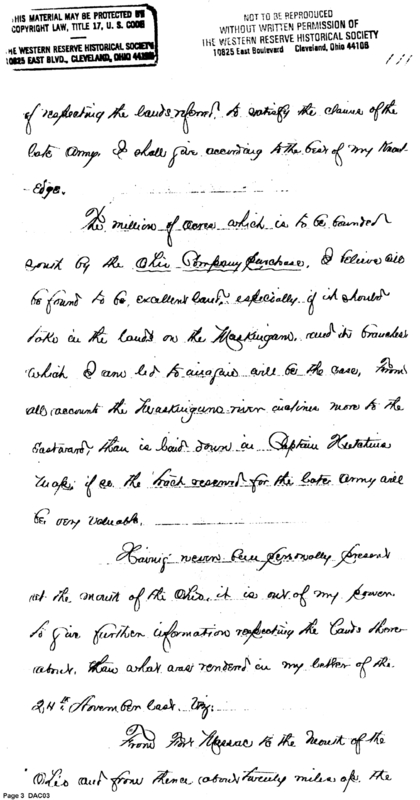 THIS MATERIAL MAY BE PROTECTED BY
COPYRIGHT LAW, TITLE 17, U.S. CODE
THE WESTERN RESERVE HISTORICAL SOCIETY
10825 EAST BLVD., CLEVELAND, OHIO 44106
NOT TO BE REPRODUCED
WITHOUT WRITTEN PERMISSION OF
THE WESTERN RESERVE HISTORICAL SOCIETY
10825 East Boulevard Cleveland, Ohio 44106
of respecting the lands to satisfy the claims of the
late Army, I shall give according to the best of my Knowl
-edge.
The million of acres which is to be bounded
south by the Ohio Company purchase, I believe will
be found to be excellent land, especially if it should
take in the lands on the Muskingum, and its branches
which I am led to will be the case, From
all accounts the Muskingum river inclines more to the
Eastward, than is laid down in Captain Hutchins
Map, if so the tract reserved for the late Army will
be very valuable.
Having never been personally present
at the mouth of the Ohio, it is out of my power
to give further information respecting the lands there
about, than what was rendered in my letter of the
24th November last. Viz.
From Fort Massac to the Mouth of the
Ohio and from thence about twenty miles up the
Page 3 DAC03